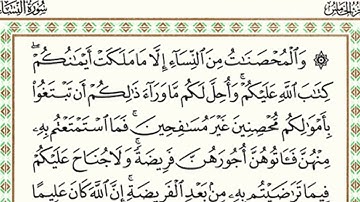 سُورَةُ النِّسَاءِ
۞ وَالْمُحْصَنَاتُ مِنَ النِّسَاءِ إِلَّا مَا مَلَكَتْ أَيْمَانُكُمْ ۖ
كِتَابَ اللَّهِ عَلَيْكُمْ ۚ وَأُحِلَّ لَكُم مَّا وَرَاءَ ذَٰلِكُمْ أَن تَبْتَغُوا
بِأَمْوَالِكُم مُّحْصِنِينَ غَيْرَ مُسَافِحِينَ ۚ فَمَا اسْتَمْتَعْتُم بِهِ
مِنْهُنَّ فَآتُوهُنَّ أُجُورَهُنَّ فَرِيضَةً ۚ وَلَا جُنَاحَ عَلَيْكُمْ
فِيمَا تَرَاضَيْتُم بِهِ مِن بَعْدِ الْفَرِيضَةِ ۚ إِنَّ اللَّهَ كَانَ عَلِيمًا